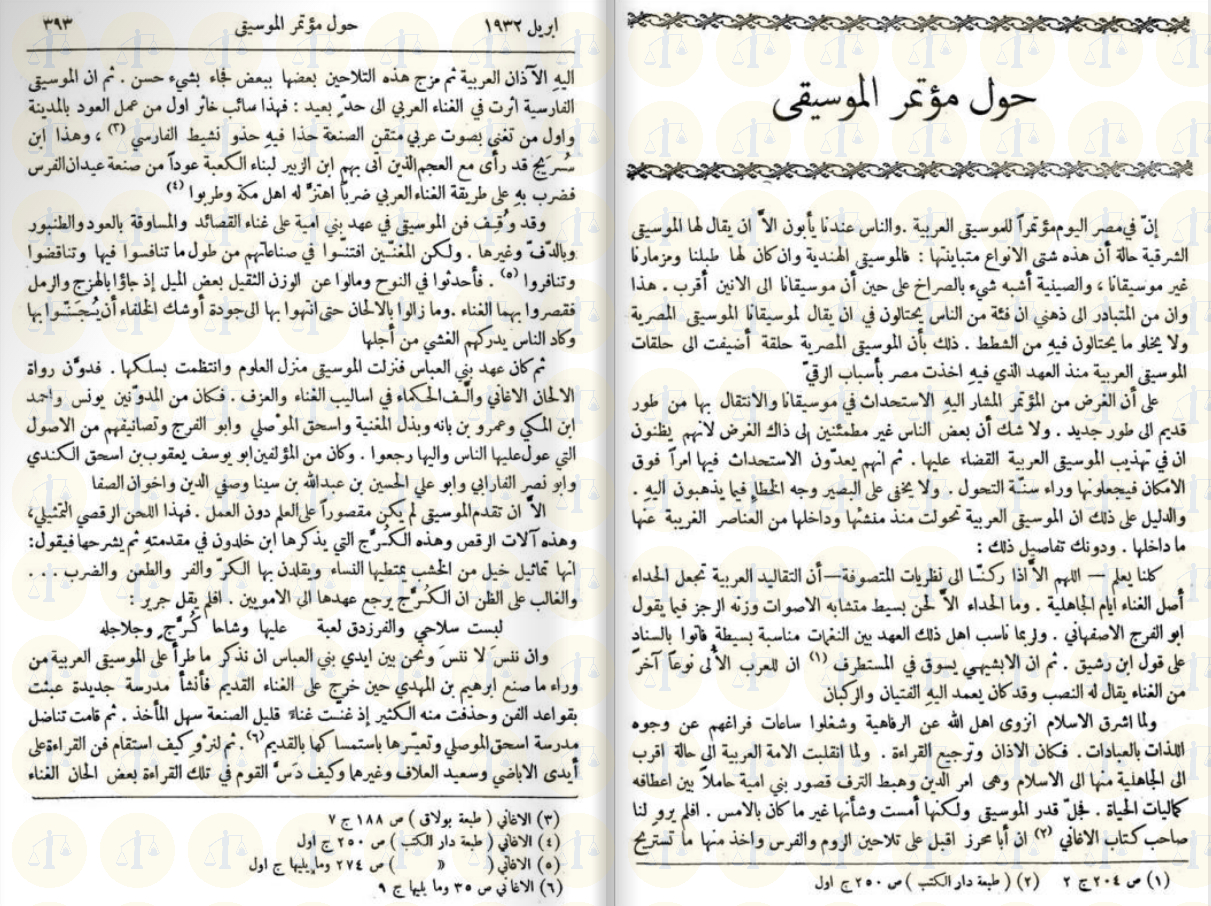 حول مؤتمر الموسيقى
إنّ في مصر اليوم مؤتمراً للموسيقى العربية . والناس عندنا يأبون الاّ ان يقال لها الموسيقى
الشرقية حالة أن هذه شتى الانواع متباينتها : فالموسيقى الهندية وان كان لها طبلنا ومزمارنا
غير موسيقانا ، والصينية أشبه شيء بالصراخ على حين أن موسيقانا الى الانين أقرب . هذا
وان من المتبادر الى ذهني ان فئة من الناس يحتالون في ان يقال لموسيقانا الموسيقى المصرية
ولا يخلو ما يحتالون فيهِ من الشطط . ذلك بأن الموسيقى المصرية حلقة أضيفت الى حلقات
الموسيقى العربية منذ العهد الذي فيهِ اخذت مصر بأسباب الرقيّ
على أن الغرض من المؤتمر المشار اليهِ الاستحداث في موسيقانا والانتقال بها من طور
قديم الى طور جديد . ولا شك أن بعض الناس غير مطمئنين إلى ذاك الغرض لانهم يظنون
ان في تهذيب الموسيقى العربية القضاء عليها . ثم انهم يعدّون الاستحداث فيها امراً فوق
الامكان فيجعلونها وراء سنّة التحول . ولا يخفى على البصير وجه الخطإ فيما يذهبون اليهِ .
والدليل على ذلك ان الموسيقى العربية تحولت منذ منشئها وداخلها من العناصر الغريبة عنها
ما داخلها . ودونك تفاصيل ذلك :
كلنا يعلم — اللهم الاَّ اذا ركنّا الى نظريات المتصوفة — أن التقاليد العربية تجعل الحداء
أصل الغناء أيام الجاهلية . وما الحداء الاَّ لحن بسيط متشابه الاصوات وزنه الرجز فيما يقول
ابو الفرج الاصفهاني . ولربما ناسب اهل ذلك العهد بين النغمات مناسبة بسيطة فأتوا بالسناد
على قول ابن رشيق . ثم ان الابشيهي يسوق في المستطرف (١) ان للعرب الأُلى نوعاً آخر
من الغناء يقال له النصب وقد كان يعمد اليهِ الفتيان والركبان
ولما اشرق الاسلام انزوى اهل الله عن الرفاهية وشغلوا ساعات فراغهم عن وجوه
اللذات بالعبادات . فكان الاذان وترجيع القراءة . ولما انقلبت الامة العربية الى حالة اقرب
الى الجاهلية منها الى الاسلام وهى امر الدين وهبط الترف قصور بني امية حاملاً بين اعطافه
كماليات الحياة . فجلّ قدر الموسيقى ولكنها أمست وشأنها غير ما كان بالامس . افلم يرو لنا
صاحب كتاب الاغاني (٢) ان أبا محرز اقبل على تلاحين الروم والفرس واخذ منها ما تستريح
(١) ص ٢٠٤ ج ٢ (٢) ( طبعة دار الكتب ) ص ٢٥٠ ج اول
ابريل ١٩٣٢ حول مؤتمر الموسيقى ٣٩٣
اليهِ الآذان العربية ثم مزج هذه التلاحين بعضها ببعض فجاء بشيء حسن . ثم ان الموسيقى
الفارسية اثرت في الغناء العربي الى حدّ بعيد : فهذا سائب خاثر اول من عمل العود بالمدينة
واول من تغنى بصوت عربي متقن الصنعة حذا فيهِ حذو نشيط الفارسي (٣) ، وهذا ابن
سُرَيج قد رأى مع العجم الذين أتى بهم ابن الزبير لبناء الكعبة عوداً من صنعة عيدان الفرس
فضرب بهِ على طريقة الغناء العربي ضرباً اهتزَّ له اهل مكة وطربوا (٤)
وقد وُقِف فن الموسيقى في عهد بني امية على غناء القصائد والمساوقة بالعود والطنبور
وبالدّفّ وغيرها . ولكن المغنّين افتنّوا في صناعاتهم من طول ما تنافسوا فيها وتناقضوا
وتنافروا (٥) . فأحدثوا في النوح ومالوا عن الوزن الثقيل بعض الميل إذ جاؤا بالهزج والرمل
فقصروا بهما الغناء . وما زالوا بالالحان حتى انتهوا بها الى جودة أوشك الخلفاء أن يُجَنّوا بها
وكاد الناس يدركهم الغشي من أجلها
ثم كان عهد بني العباس فنزلت الموسيقى منزل العلوم وانتظمت بسلكها . فدوَّن رواة
الالحان الاغاني وألّف الحكماء في اساليب الغناء والعزف . فكان من المدوّنين يونس واحمد
ابن المكي وعمرو بن بانه وبذل المغنية واسحق الموصلي وابو الفرج وتصانيفهم من الاصول
التي عول عليها الناس واليها رجعوا . وكان من المؤلفين ابو يوسف يعقوب بن اسحق الكندي
وابو نصر الفارابي وابو علي الحسين بن عبدالله بن سينا وصفي الدين واخوان الصفا
الاَّ ان تقدم الموسيقى لم يكن مقصوراً على العلم دون العمل . فهذا اللحن الرقصي التمثيلي،
وهذه آلات الرقص وهذه الكُرَّج التي يذكرها ابن خلدون في مقدمتهِ ثم يشرحها فيقول:
انها تماثيل خيل من الخشب يمتطيها النساء ويقلدن بها الكرّ والفر والطعن والضرب . . .
والغالب على الظن ان الكُرَّج يرجع عهدها الى الامويين . افلم يقل جرير :
لبست سلاحي والفرزدق لعبة عليها وشاحا كُرَّجٍ وجلاجله
وان ننسَ لا ننسَ ونحن بين ايدي بني العباس ان نذكر ما طرأ على الموسيقى العربية من
وراء ما صنع ابرهيم بن المهدي حين خرج على الغناء القديم فأنشأ مدرسة جديدة عبثت
بقواعد الفن وحذفت منه الكثير إذ غنّت غناءً قليل الصنعة سهل المأخذ . ثم قامت تناضل
مدرسة اسحق الموصلي وتعيّرها باستمساكها بالقديم (٦) . ثم لنرَ كيف استقام فن القراءة على
أيدى الاباضي وسعيد العلاف وغيرها وكيف دَسَّ القوم في تلك القراءة بعض الحان الغناء
(٣) الاغاني ( طبعة بولاق ) ص ١٨٨ ج ٧
(٤) الاغاني ( طبعة دار الكتب ) ص ٢٥٠ ج اول
(٥) الاغاني ( « ) ص ٢٧٤ وما يليها ج اول
(٦) الاغاني ص ٣٥ وما يليها ج ٩